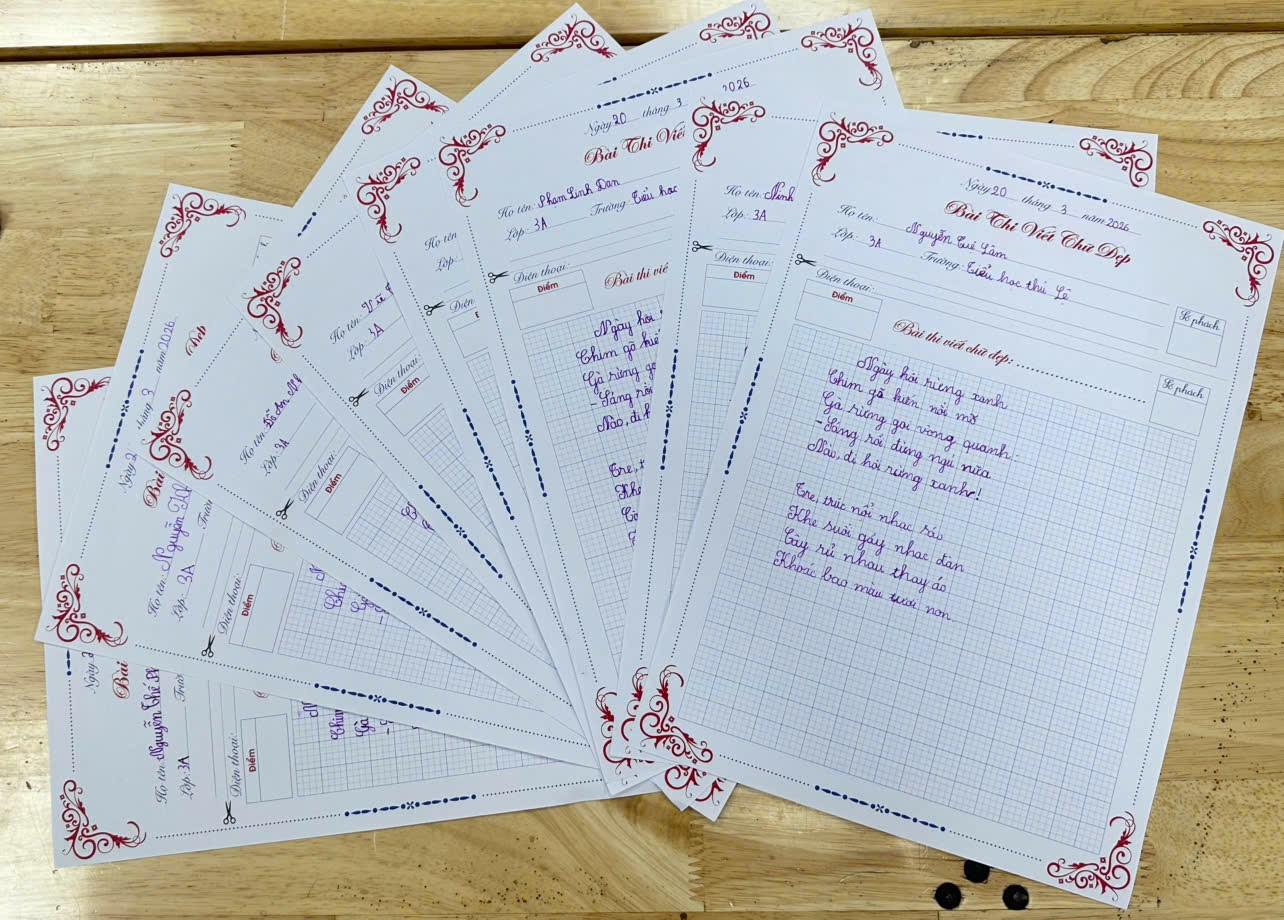 Ngày 20 tháng 3 năm 2026
Bài Thi Viết Chữ Đẹp
Họ tên: Nguyễn Tuệ Lâm
Lớp: 3A Trường: Tiểu học thủ Lệ
Điện thoại:
Điểm
Số phách
Bài thi viết chữ đẹp:
Số phách
Ngày hội rừng xanh
Chim gõ kiến nổi mõ
Gà rừng gọi vòng quanh:
- Sáng rồi, đừng ngủ nữa
Nào, đi hội rừng xanh!
Tre, trúc nổi nhạc sáo
Khe suối gảy nhạc đàn
Cây rủ nhau thay áo
Khoác bao màu tươi non.
Họ tên: Ninh
Lớp: 3A
Điện thoại:
Điểm
Ngày 20 tháng 3 2026
Bài Thi Viết
Họ tên: Phạm Linh Đan
Lớp: 3A Trường: Tiểu học
Điện thoại:
Điểm
Bài thi viết
Ngày hội
Chim gõ kiế
Gà rừng gọ
- Sáng rồi
Nào, đi h
Tre, t
Khe
Họ tên
Lớp
Điện
Họ tên:
Lớp: 3A
Điện thoại:
Điểm
Họ tên: Đỗ An
Lớp: 3A
Điện thoại:
Điểm
Ngày 2 tháng 3 năm 2026
Bài
Đẹp
Họ tên: Nguyễn
Lớp: 3A Trườ
Điện thoại:
Điểm
Chi
Ngày 2
Bài
Họ tên: Nguyễn Thế
Lớp: 3A Trườ
Điện thoại:
Điểm
Chim
Gà